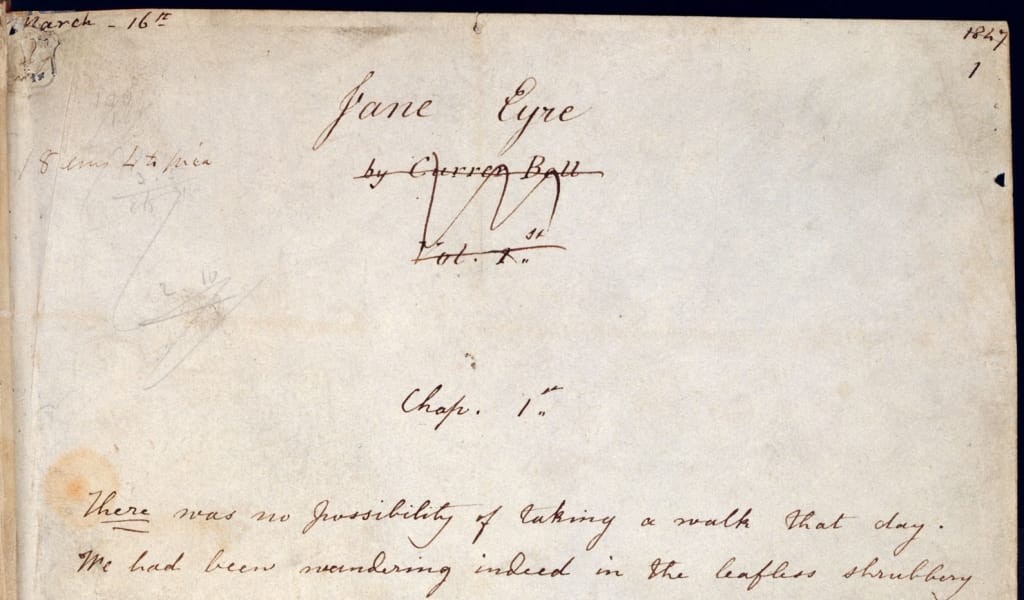 March - 16th
1847
1
Jane Eyre
by Currer Bell
Vol. 1st
Chap. 1st
There was no possibility of taking a walk that day.
We had been wandering indeed in the leafless shrubbery